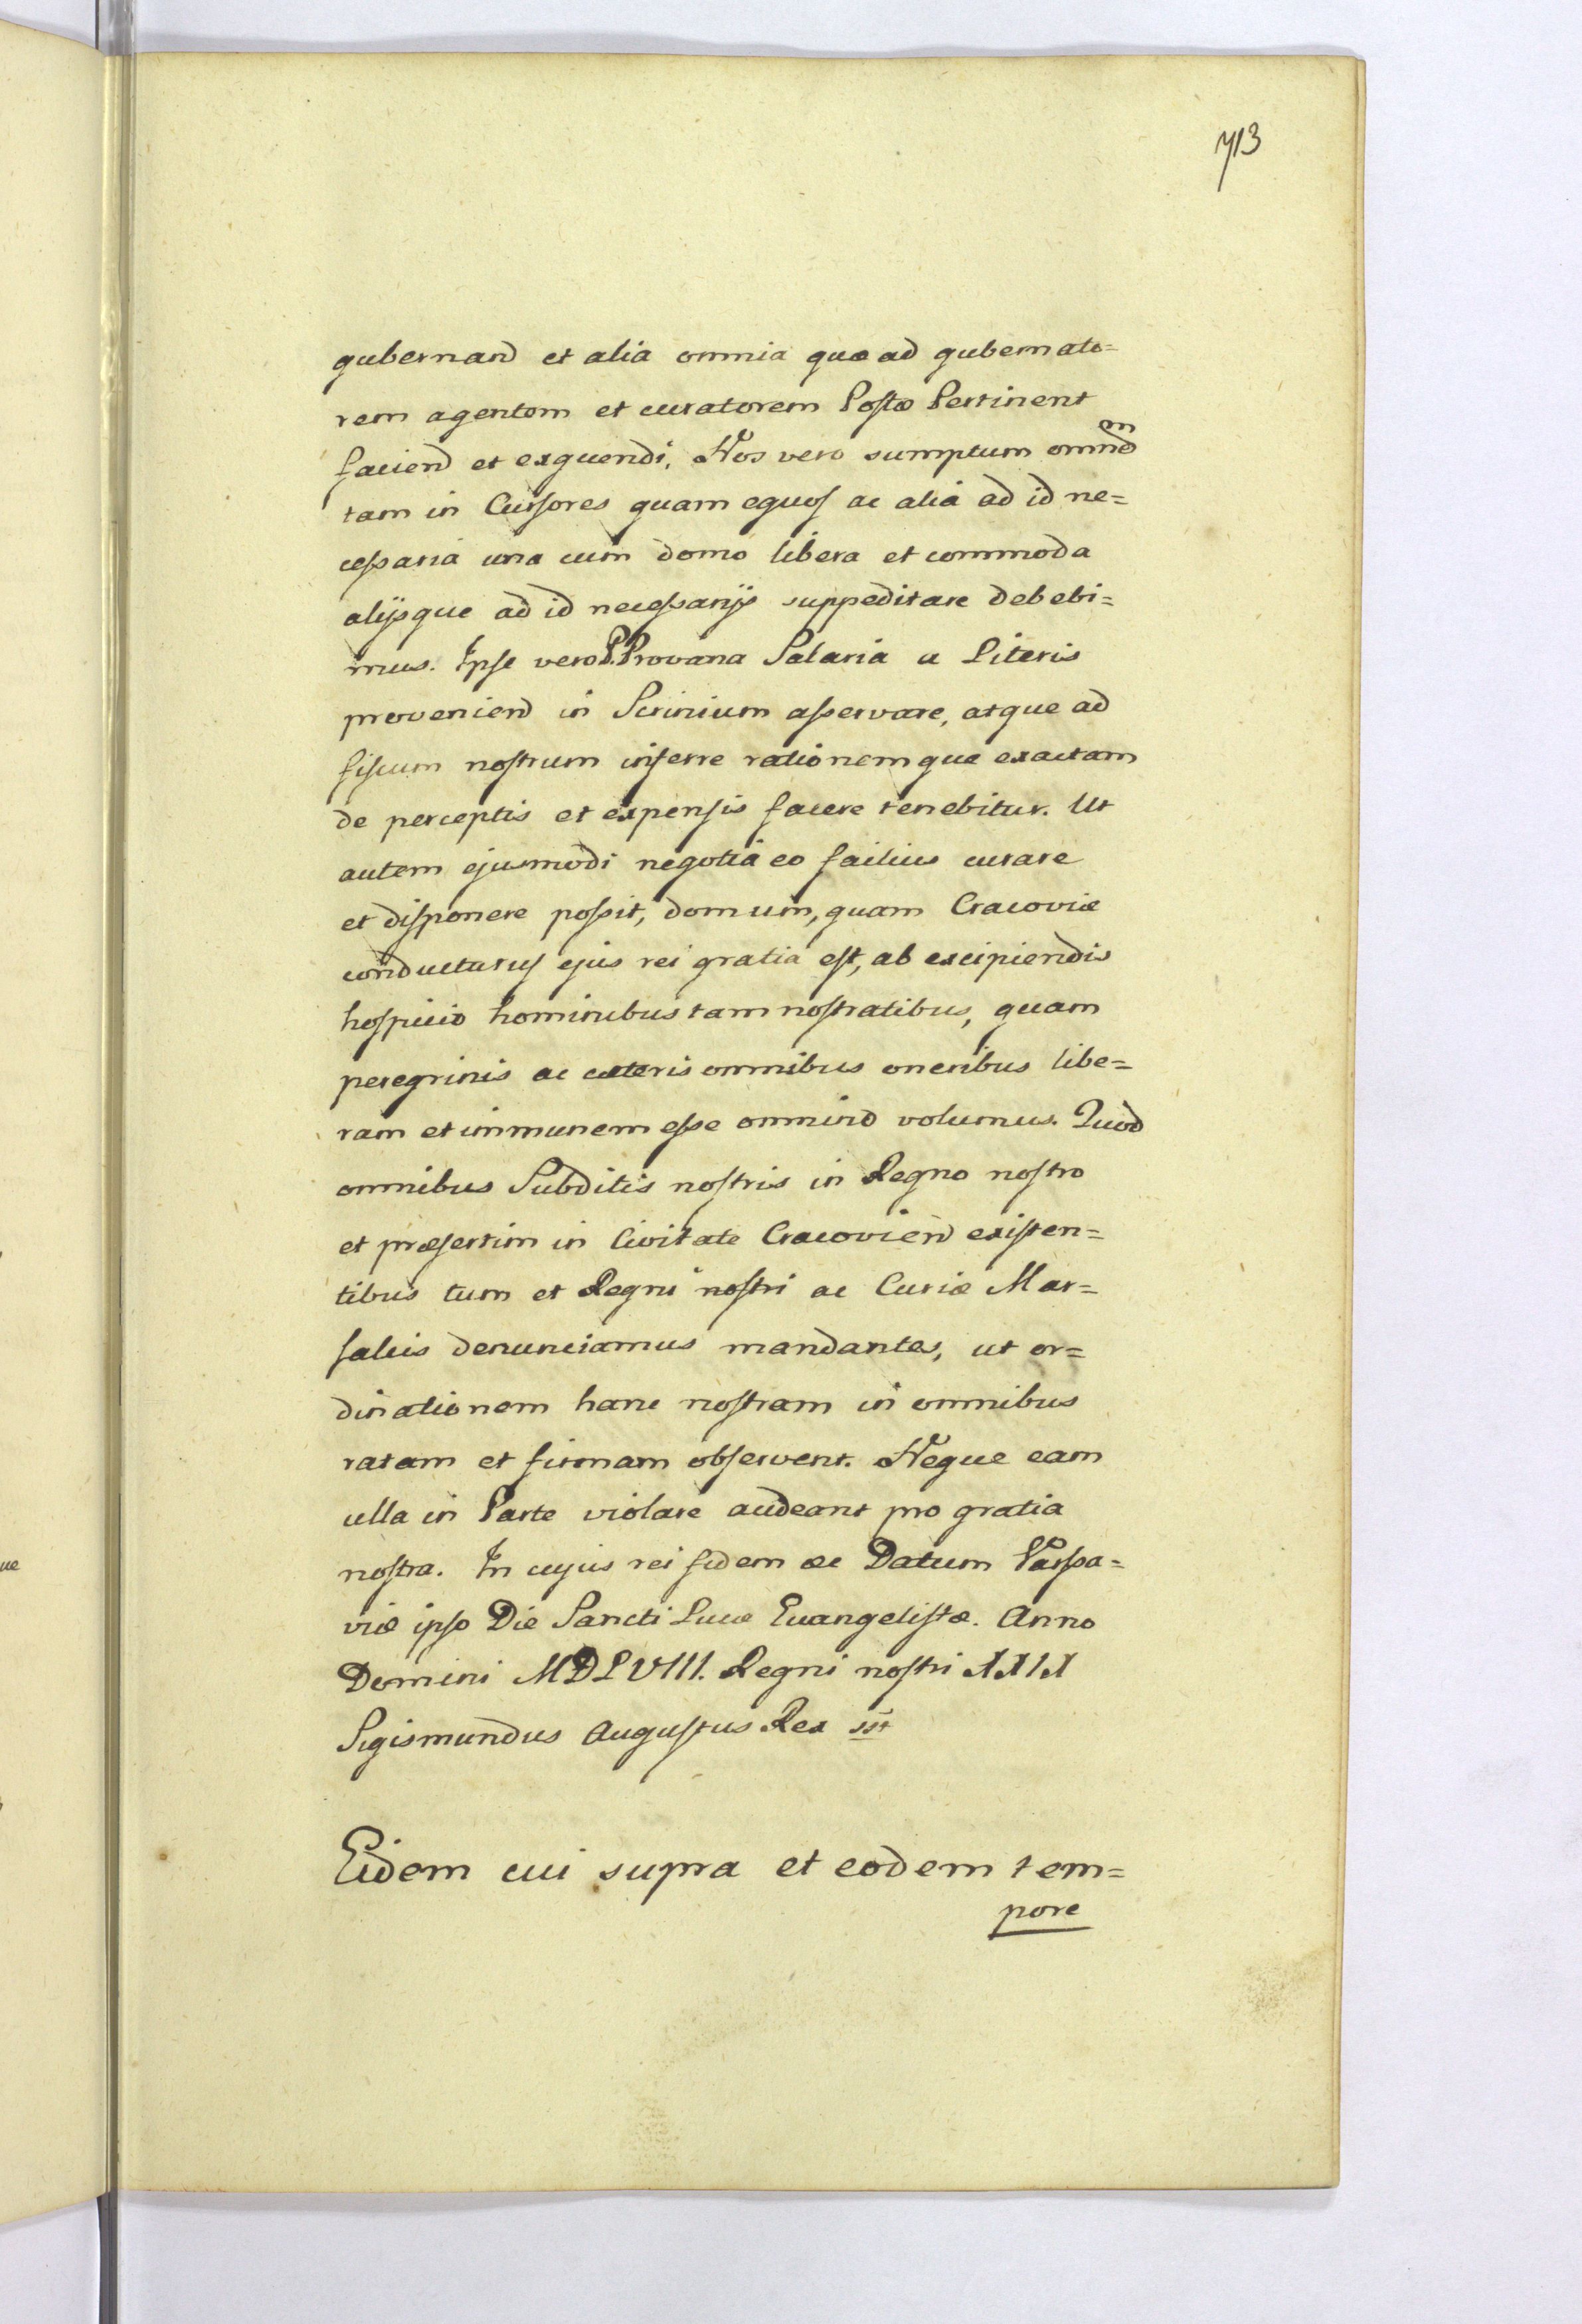 713
gubernand et alia omnia quæ ad gubernato=
rem agentem et curatorem Postæ Pertinent
faciend et exquendi, Nos vero sumptum omnem
tam in Cursores quam equos ac alia ad id ne=
cessaria una cum domo libera et commoda
alijsque ad id necessarijs suppeditare debebi=
mus. Ipse vero P. Provana Salaria a Literis
proveniend in Scrinium asservare, atque ad
fiscum nostrum inferre rationemque exactam
de perceptis et expensis facere tenebitur. Ut
autem ejusmodi negotia eo facilius curare
et disponere possit, domum, quam Cracoviæ
conducturus ejus rei gratia est, ab excipiendis
hospicio hominibus tam nostratibus, quam
peregrinis ac cæteris omnibus oneribus libe=
ram et immunem esse omnino volumus. Quod
omnibus Subditis nostris in Regno nostro
et præsertim in Civitate Cracoviend existen=
tibus tum et Regni nostri ac Curiæ Mar=
salcis denunciamus mandantes, ut or=
dinationem hanc nostram in omnibus
ratam et firmam observent. Neque eam
ulla in Parte violare audeant pro gratia
nostra. In cujus rei fidem &c Datum Varsa=
viæ ipso Die Sancti Lucæ Evangelistæ. Anno
Domini MDLVIII. Regni nostri XXIX
Sigismundus Augustus Rex sst
Eidem cui supra et eodem tem=
pore
ue